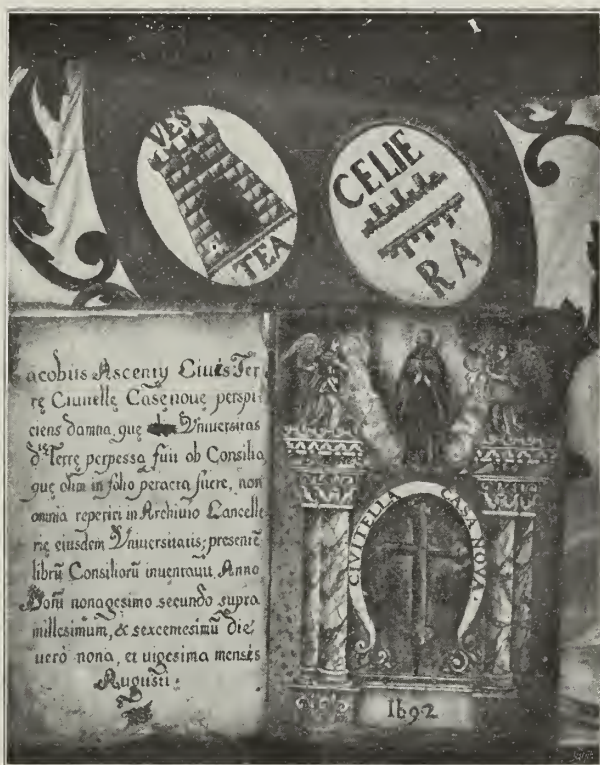 VES
TEA
CELIE
RA
acobus Ascenty Ciuis Ter
rę Ciuitellę Casęnouę perspi
ciens damna, quę Vniuersitas
d.ᵃ Terrę perpessa fuit ob Consilia,
quę olim in folio peracta fuere, non
omnia reperiri in Archiuio Cancellę
rię eiusdem Vniuersitatis; presentē
librū Consiliorū inuentauit Anno
Domī nonagesimo secundo supra
millesimum, & sexcentesimū die
uerò nona, et uigesima mensis
Augusti.
CIVITELLA CASANOVA
1692